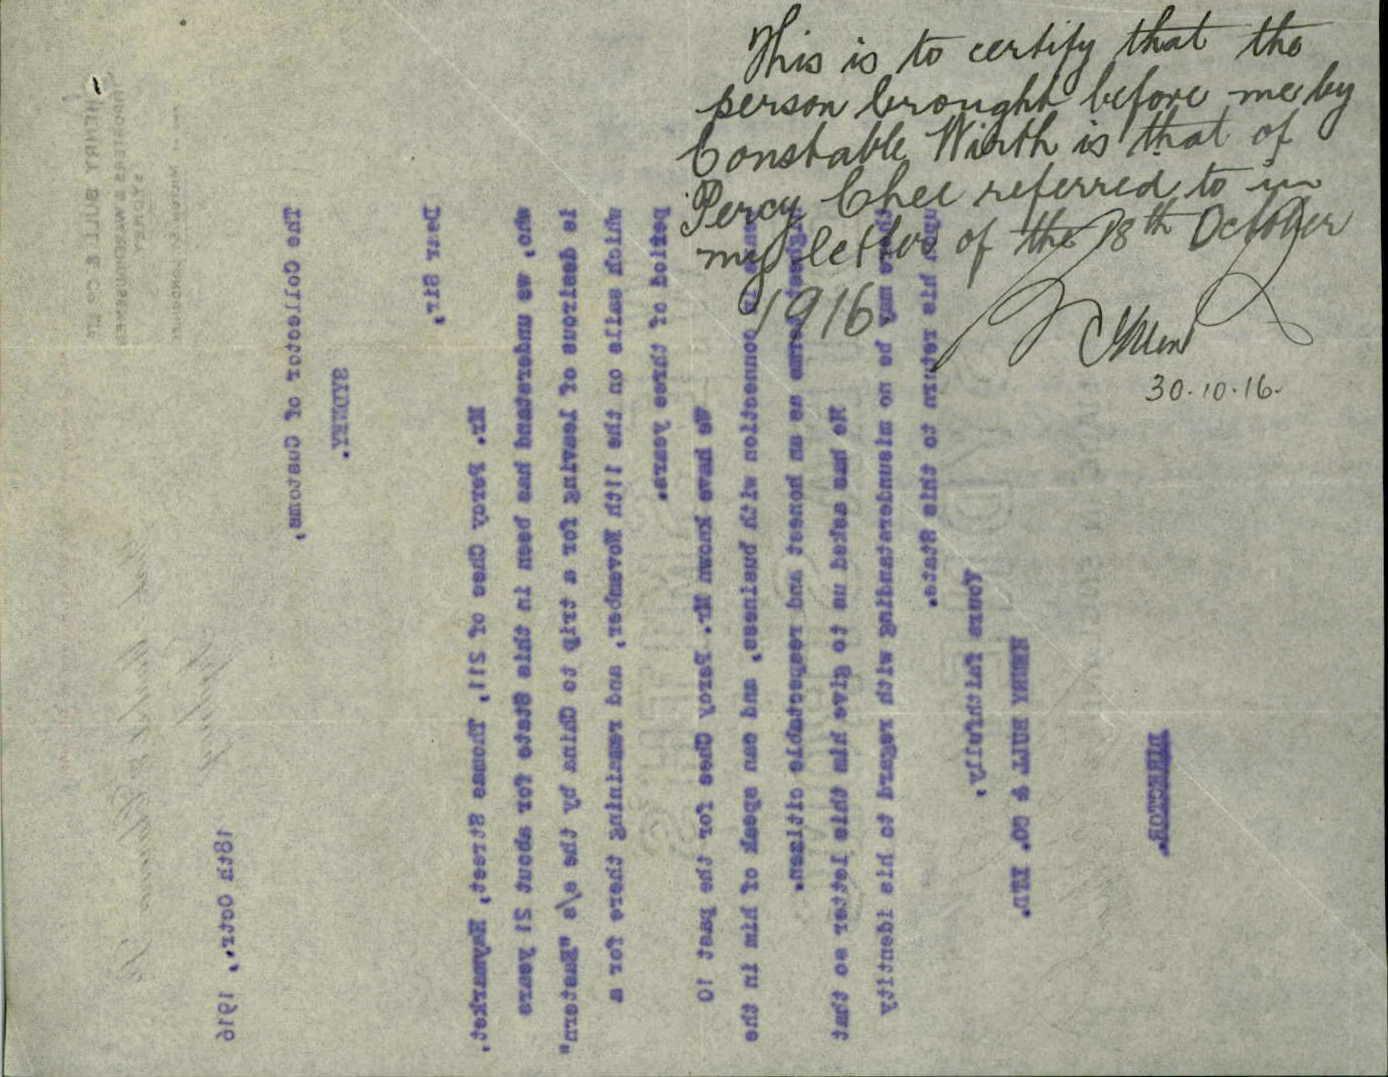 This is to certify that the
person brought before me by
Constable Wirth is that of
Percy Chee referred to in
my letter of the 18th October
1916
30.10.16.
HENRY BULL & CO. LTD
SYDNEY
18th Octr., 1916
The Collector of Customs,
SYDNEY.
Dear Sir,
Mr. Percy Chee of 211, Thomas Street, Haymarket,
who, we understand has been in this State for about 21 years
is desirous of leaving for a trip to China by the s/s "Eastern"
which sails on the 11th November, and remaining there for a
period of three years.
We have known Mr. Percy Chee for the past 10
in connection with business, and can speak of him in the
terms as an honest and respectable citizen.
He has asked us to give him this letter so that
there may be no misunderstanding with regard to his identity
upon his return to this State.
Yours faithfully,
HENRY BULL & CO. LTD.
DIRECTOR.